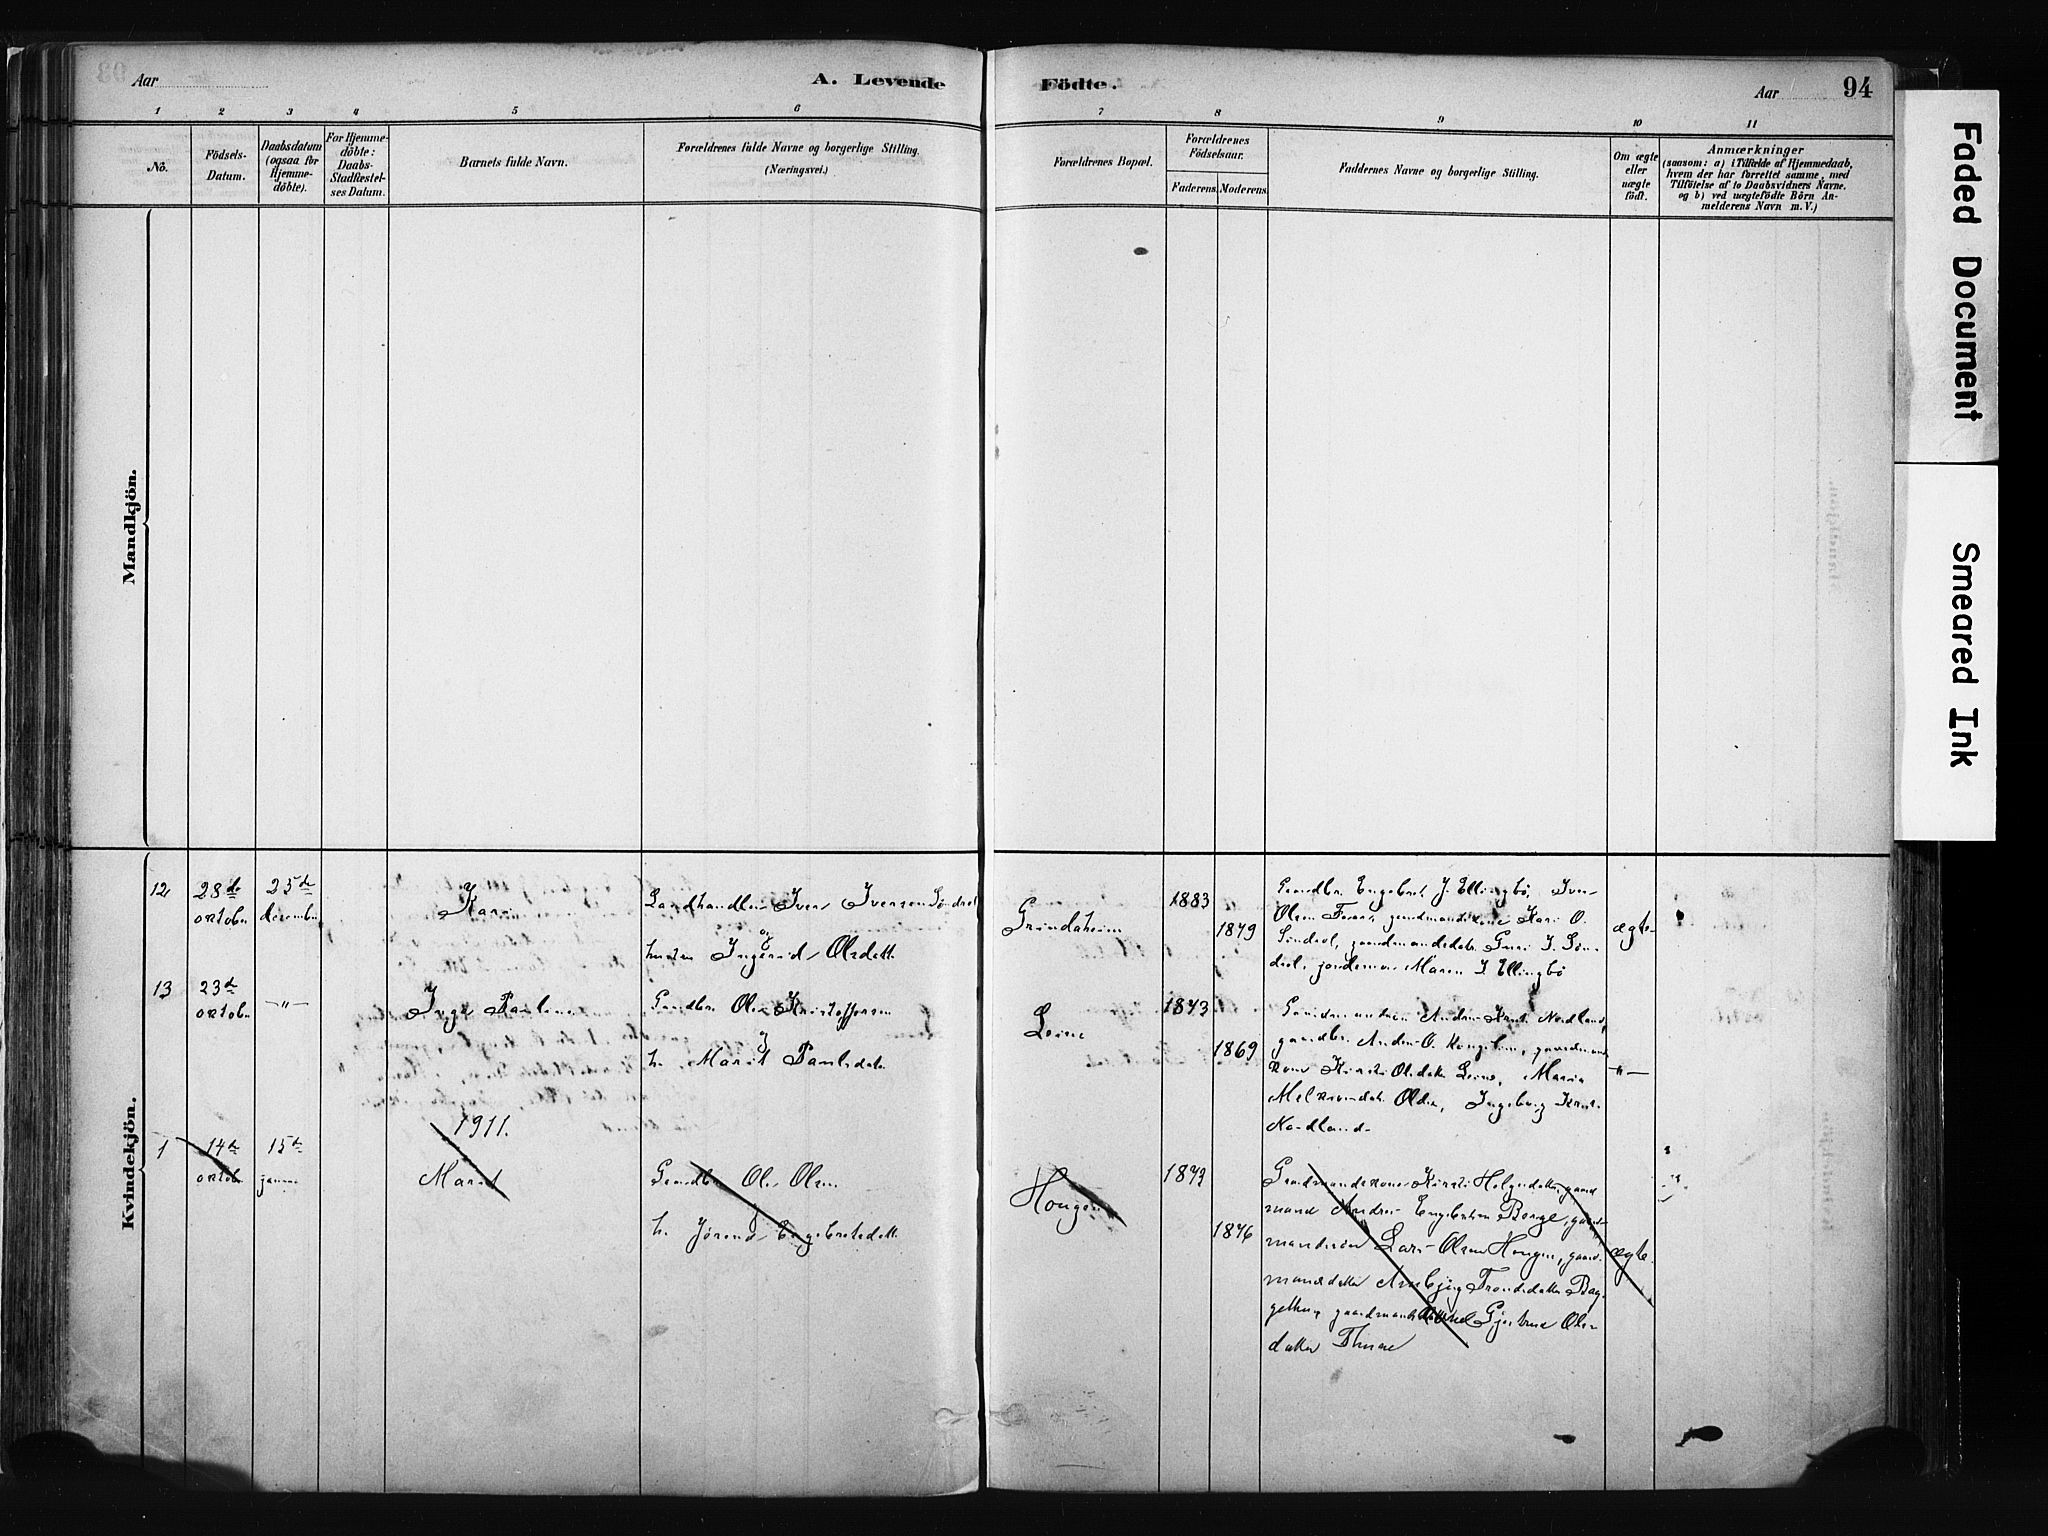 Aar
A. Levende
Födte.
Aar
94
1 2 3 4 5 6 7 8 9 10 11
No.
Födsels-
Datum.
Daabsdatum
(ogsaa for
Hjemme-
döbte).
For Hjemme-
döbte:
Daabs-
Stadfæstel-
ses Datum.
Barnets fulde Navn.
Forældrenes fulde Navne og borgerlige Stilling.
(Næringsvei.)
Forældrenes Bopæl.
Forældrenes
Födselsaar.
Faderens.
Moderens.
Faddernes Navne og borgerlige Stilling.
Om ægte
eller
uægte
födt.
Anmærkninger
(saasom: a) i Tilfælde af Hjemmedaab,
hvem der har forrettet samme, med
Tilföielse af to Daabsvidners Navne,
og b) ved uægtefödte Börn An-
melderens Navn m. V.)
Mandkjön.
Kvindekjön.
12
28de
oktober
25de
december
Kari
Landhandler Iver Iversen Söndrol
og
hustru Ingerid Olsdatter
Grindaheim
1883
1879
Gaardbr. Engebret J. Ellingbö, Iver
Olsen gaardmandskone Kari O.
Söndrol, gaardmandsdatr Guri I. Sön-
drol, Maren I. Ellingbö
ægte
13
23de
oktober
-"-
Inga Pauline
Gaardbr. Ole Kristoffersen
og
h. Marit Paulsdatr
Leine
1873
1869
Nordland,
gaardbr. Anders O. gaardmands
kone Kirsti Olsdatter Leine, Maria
Olden, Ingeborg
Nordland
-"-
1911.
1
14de
oktober
15de
januar
Marit
Gaardbr Ole Olsen
og
h. Jörend Engebretsdatter
Hougen
1872
1876
Gaardmandskone Kirsti Helgesdatter, gaard
mand Andres Engebretsen Berge, gaard-
mandssön Lars Olsen Hougen, gaard-
mandsdatter Trondsdatter
gaardmands Gjertrud Ols-
datter Thune
ægte
Faded Document
Smeared Ink